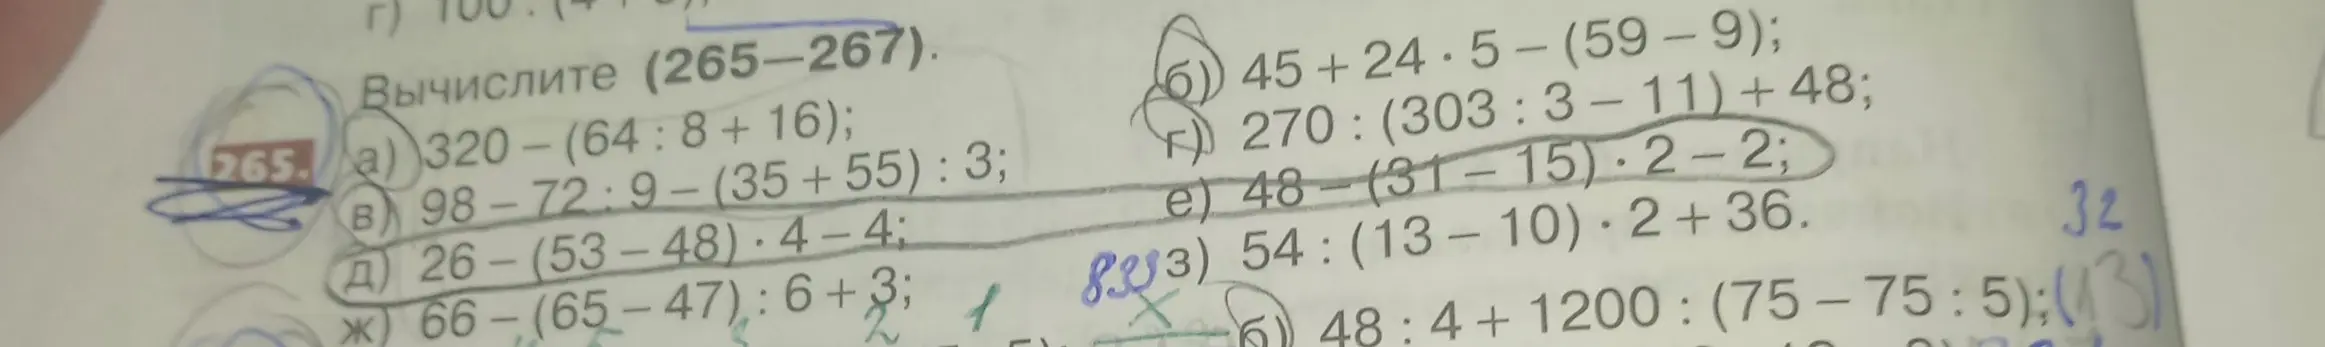 г) 100 : (4
Вычислите (265—267).
265. а) 320 – (64 : 8 + 16);
б) 45 + 24 · 5 – (59 – 9);
в) 98 – 72 : 9 – (35 + 55) : 3;
г) 270 : (303 : 3 – 11) + 48;
д) 26 – (53 – 48) · 4 – 4;
е) 48 – (31 – 15) · 2 – 2;
ж) 66 – (65 – 47) : 6 + 3;
з) 54 : (13 – 10) · 2 + 36.
32
2 1
б) 48 : 4 + 1200 : (75 – 75 : 5); (13)